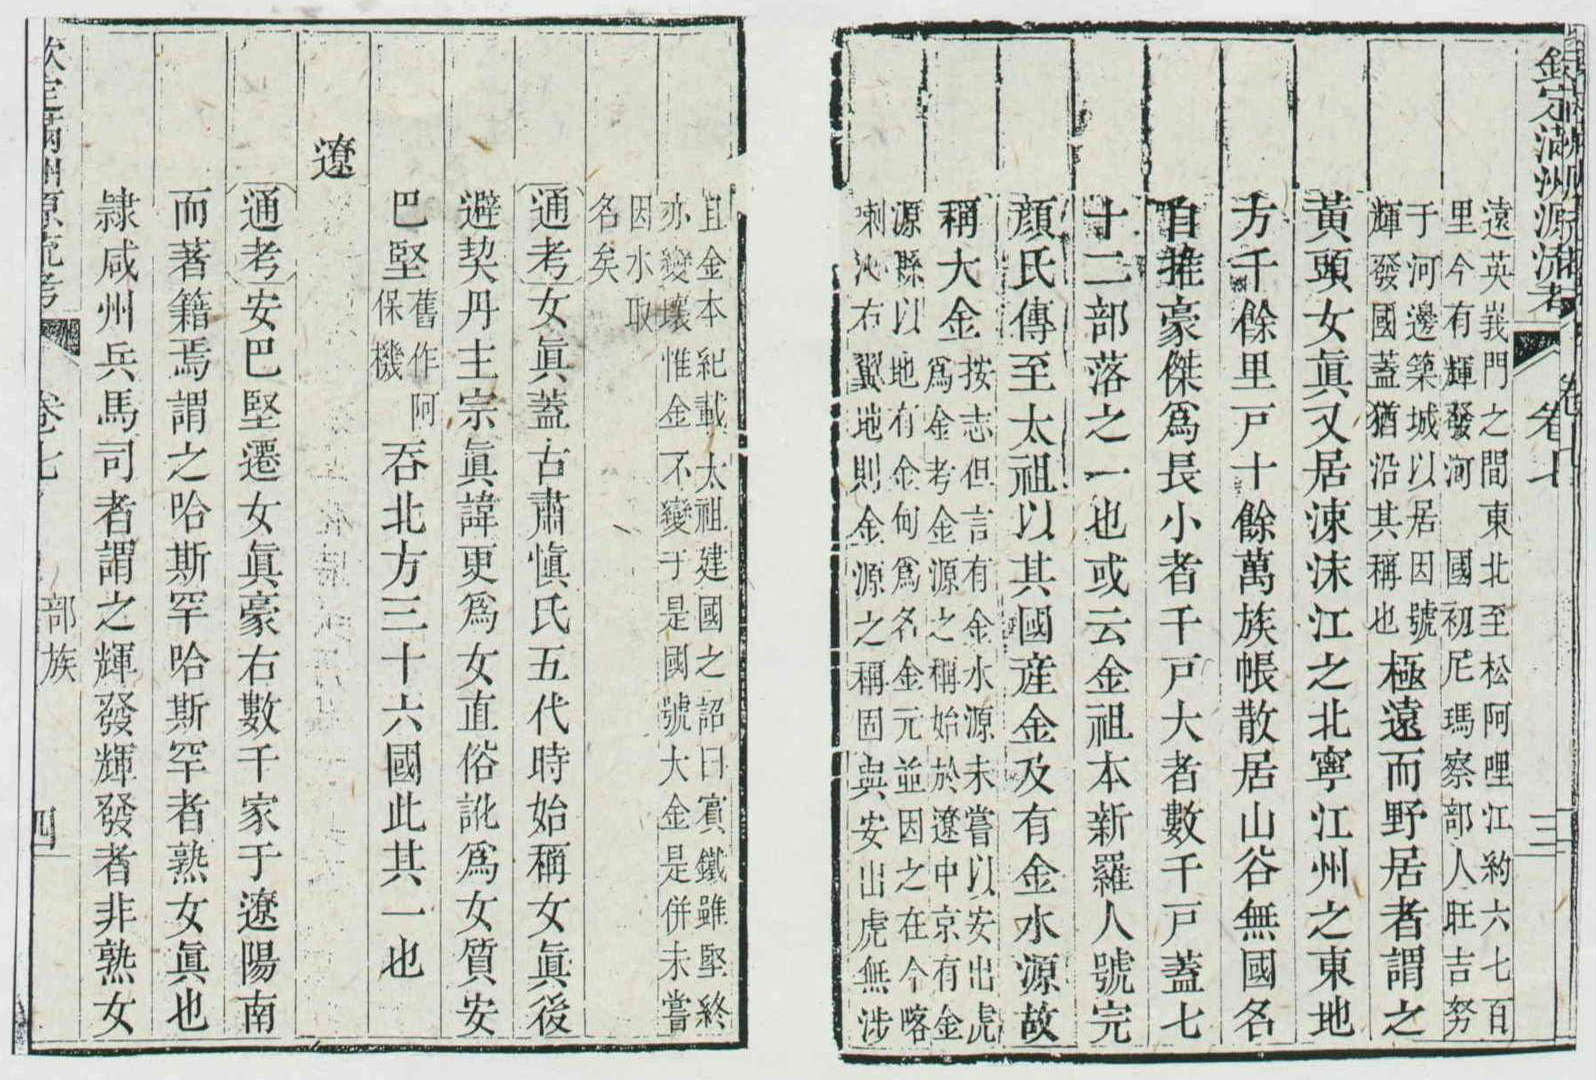 欽定滿洲源流考 卷七 三
遠英莪門之間東北至松阿哩江約六七百
里今有輝發河 國初尼瑪察部人旺吉努
于河邊築城以居因號
輝發國蓋猶沿其稱也
極遠而野居者謂之
黃頭女眞又居涑沫江之北寧江州之東地
方千餘里戸十餘萬族帳散居山谷無國名
自推豪傑爲長小者千戸大者數千戸蓋七
十二部落之一也或云金祖本新羅人號完
顏氏傳至太祖以其國産金及有金水源故
稱大金
按志但言有金水源未嘗以安出虎
爲金考金源之稱始於遼中京有金
源縣以地有金甸爲名金元並因之在今喀
喇沁右翼地則金源之稱固與安出虎無涉
且金本紀載太祖建國之詔曰賓鐵雖堅終
亦變壞惟金不變于是國號大金是併未嘗
因水取
名矣
通考女眞蓋古肅愼氏五代時始稱女眞後
避契丹主宗眞諱更爲女直俗訛爲女質安
巴堅
舊作阿
保機
吞北方三十六國此其一也
遼
通考安巴堅遷女眞豪右數千家于遼陽南
而著籍焉謂之哈斯罕哈斯罕者熟女眞也
隷咸州兵馬司者謂之輝發輝發者非熟女
欽定滿洲源流考 卷七 部族 四